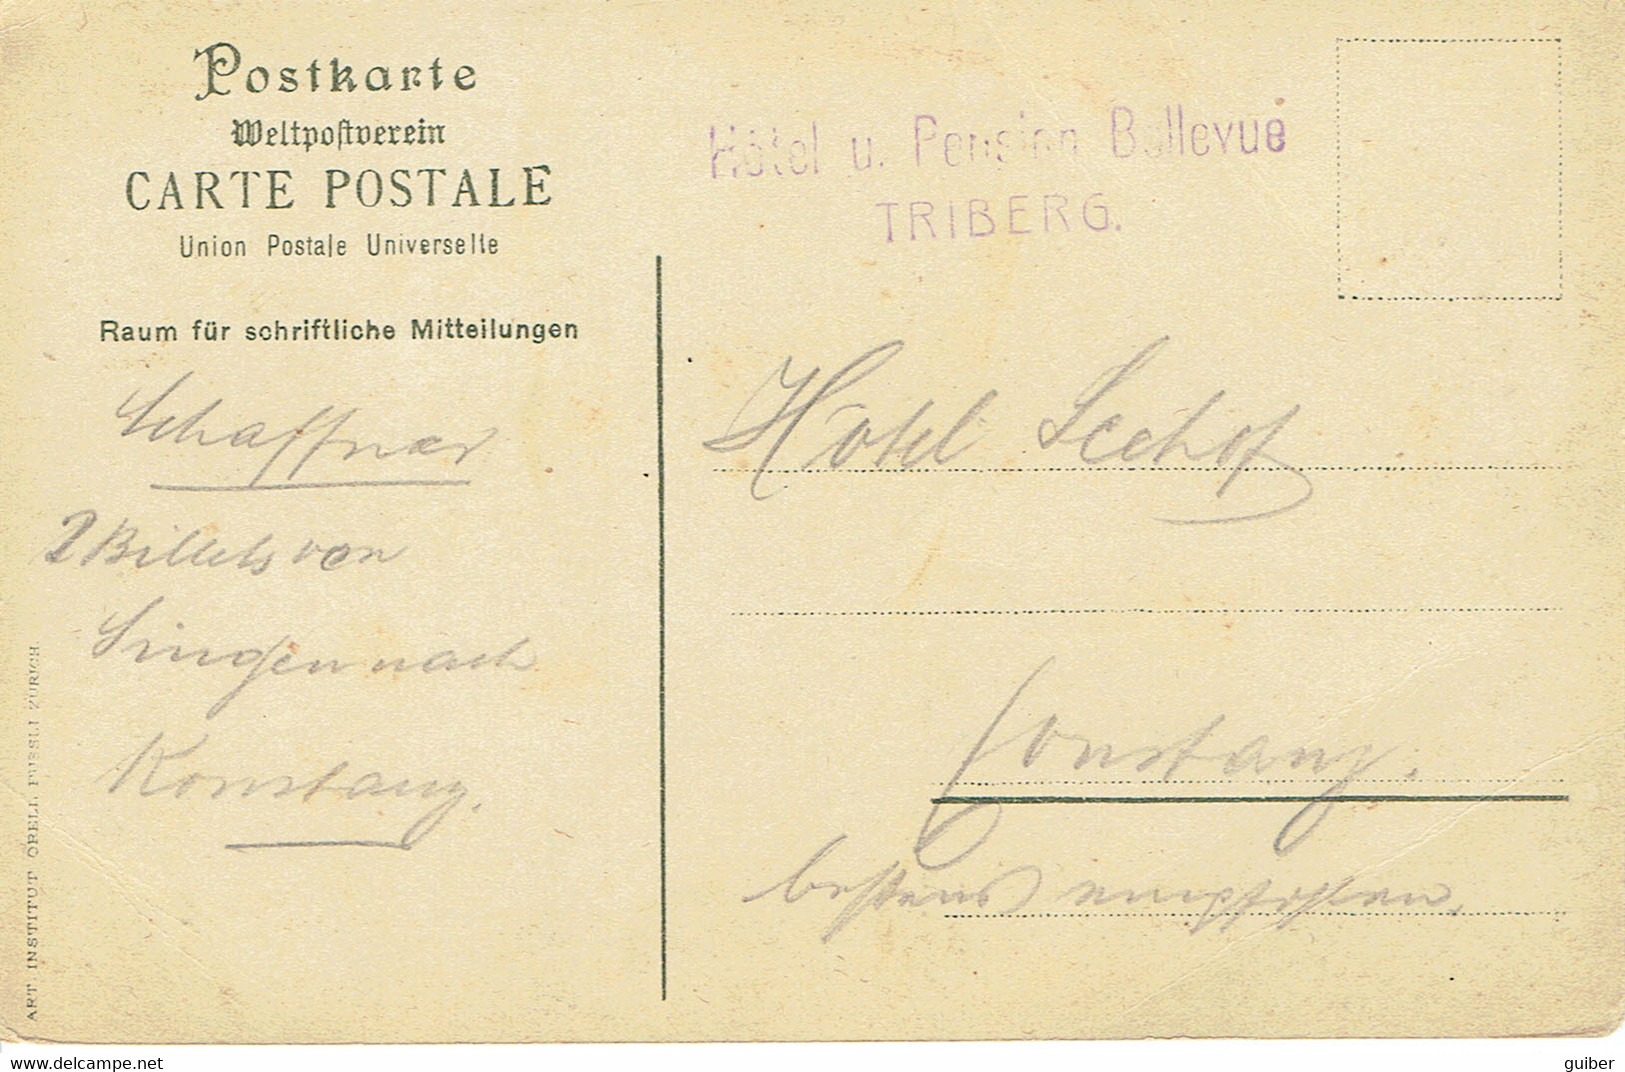 Postkarte
Weltpostverein
CARTE POSTALE
Union Postale Universelle
Raum für schriftliche Mitteilungen
Schaffner
2 Billets von
Singen nach
Konstanz.
ART. INSTITUT ORELL FUSSLI ZURICH.
Hôtel u. Pension Bellevue
TRIBERG.
Hôtel Seehof
Constanz.
bestens empfohlen.
www.delcampe.net
guiber